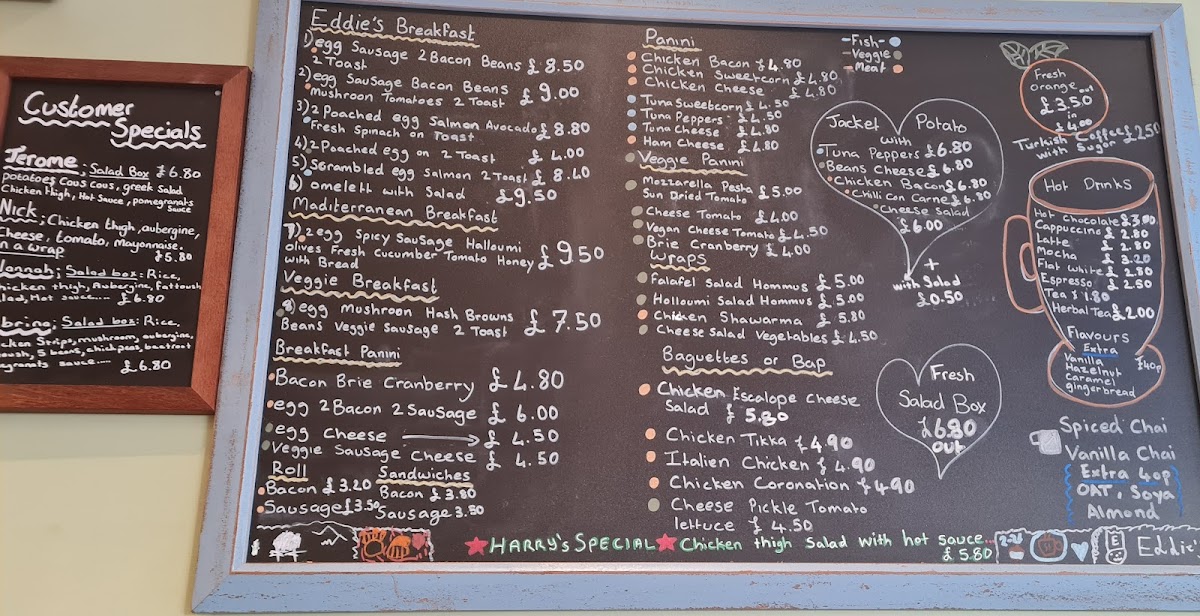 Customer
Specials
Jerome; Salad Box £6.80
potatoes Cous cous, greek Salad
Chicken thigh, Hot Sauce, pomegranate
sauce
Nick; Chicken thigh, aubergine,
Cheese, tomato, Mayonnaise.
n a wrap £5.80
Salad box: Rice,
hicken thigh, Aubergine, Fattoush
alad, Hot sauce..... £6.80
Salad box: Rice,
cken Strips, mushroom, aubergine,
oush, 5 beans, chick peas, beetroot
egranate sauce.... £6.80
Eddie's Breakfast
1) egg Sausage 2 Bacon Beans £8.50
2 Toast
2) egg Sausage Bacon Beans £9.00
Mushroom Tomatoes 2 Toast
3) 2 Poached egg Salmon Avocado £8.80
Fresh Spinach on Toast
4) 2 Poached egg on 2 Toast £4.00
5) Scrambled egg Salmon 2 Toast £8.40
6) omelett with Salad £9.50
Maditerranean Breakfast
7) 2 egg Spicy Sausage Halloumi
olives Fresh Cucumber Tomato Honey £9.50
with Bread
Veggie Breakfast
8) egg Mushroon Hash Browns
Beans Veggie Sausage 2 Toast £7.50
Breakfast Panini
Bacon Brie Cranberry £4.80
egg 2 Bacon 2 Sausage £6.00
egg cheese £4.50
Veggie Sausage Cheese £4.50
Roll
Bacon £3.20
Sausage £3.50
Sandwiches
Bacon £3.80
Sausage 3.50
Panini
Chicken Bacon £4.80
Chicken Sweetcorn £4.80
Chicken Cheese £4.80
Tuna Sweetcorn £4.50
Tuna Peppers £4.50
Tuna Cheese £4.80
Ham Cheese £4.80
Veggie Panini
Mozzarella Pesta
Sun Dried Tomato £5.00
Cheese Tomato £4.00
Vegan Cheese Tomato £4.50
Brie Cranberry £4.00
Wraps
Falafel Salad Hommus £5.00
Holloumi Salad Hommus £5.00
Chicken Shawarma £5.80
Cheese Salad Vegetables £4.50
Baguettes or Bap
Chicken Escalope Cheese
Salad £5.80
Chicken Tikka £4.90
Italien Chicken £4.90
Chicken Coronation £4.90
Cheese Pickle Tomato
lettuce £4.50
-Fish-
-Veggie
-Meat
Jacket Potato
with
Tuna Peppers £6.80
Beans Cheese £6.80
Chicken Bacon £6.80
Chilli Con Carne £6.80
Cheese Salad
£6.00
+
with Salad
£0.50
Fresh
Salad Box
£6.80
out
Fresh
orange out
£3.50
in
£4.00
Turkish Coffee £2.50
with Sugar
Hot Drinks
Hot Chocolate £3.00
Cappuccino £2.80
Latte £2.80
Mocha £3.20
Flat white £2.80
Espresso £2.50
Tea £1.80
Herbal Tea £2.00
Flavours
Extra
Vanilla £40p
Hazelnut
Caramel
gingerbread
Spiced Chai
Vanilla Chai
Extra 40p
OAT, Soya
Almond
HARRY's SPECIAL Chicken thigh Salad with hot sauce...
£5.80
Eddie'